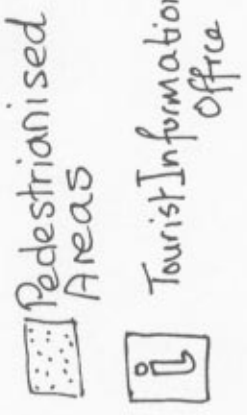 Pedestrianised
Areas
i
Tourist Information
Office